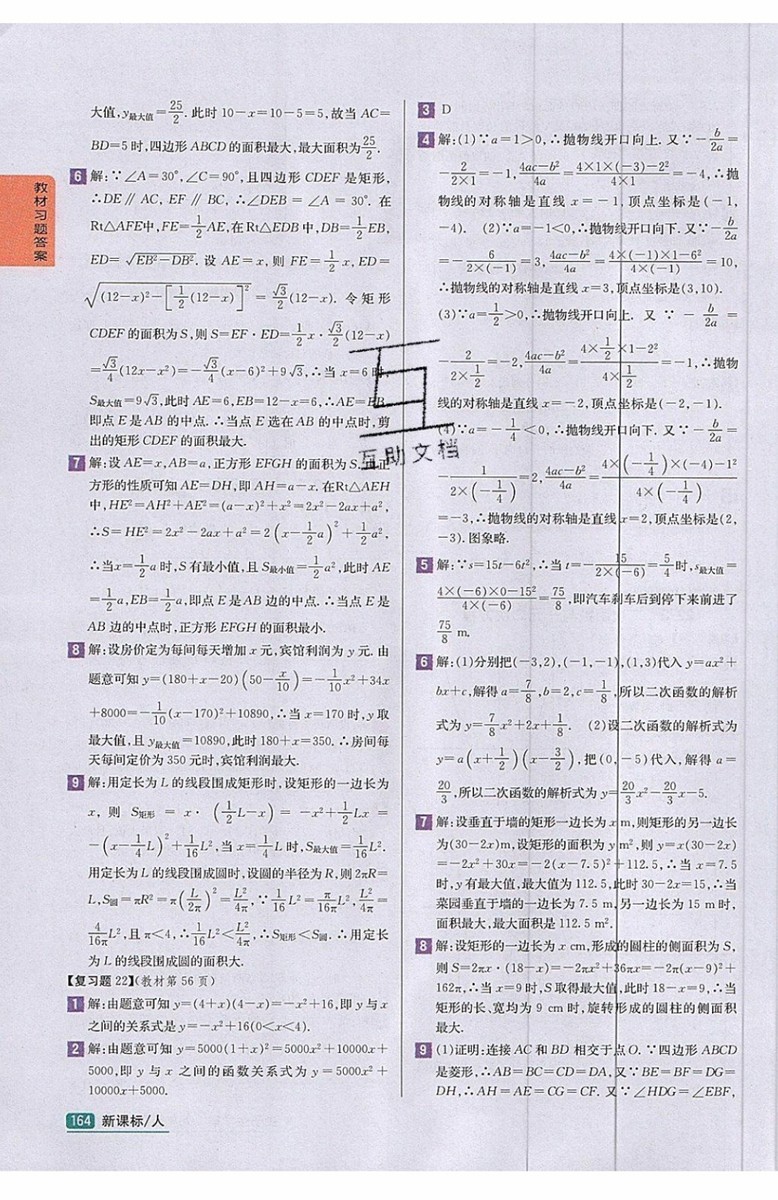 教材习题答案
大值,y最大值=25/2.此时 10-x=10-5=5,故当 AC=
BD=5 时,四边形 ABCD 的面积最大,最大面积为25/2.
6 解:∵∠A=30°,∠C=90°,且四边形 CDEF 是矩形,
∴DE∥AC, EF∥BC, ∴∠DEB=∠A=30°. 在
Rt△AFE中,FE=1/2AE,在Rt△EDB中,DB=1/2EB,
ED=√(EB²-DB²). 设 AE=x, 则 FE=1/2x, ED=
√((12-x)²-[1/2(12-x)]²)=√3/2(12-x). 令矩形
CDEF 的面积为 S,则 S=EF·ED=1/2x·√3/2(12-x)
=√3/4(12x-x²)=-√3/4(x-6)²+9√3,∴当 x=6 时,
S最大值=9√3,此时 AE=6,EB=12-x=6,∴AE=EB,
即点 E 是 AB 的中点.∴当点 E 选在 AB 的中点时,剪
出的矩形 CDEF 的面积最大.
7 解:设 AE=x,AB=a,正方形 EFGH 的面积为 S.由正
方形的性质可知 AE=DH,即 AH=a-x.在Rt△AEH
中,HE²=AH²+AE²=(a-x)²+x²=2x²-2ax+a²,
∴S=HE²=2x²-2ax+a²=2(x-1/2a)²+1/2a²,
∴当x=1/2a 时,S 有最小值,且 S最小值=1/2a²,此时 AE
=1/2a,EB=1/2a,即点 E 是 AB 边的中点.∴当点 E 是
AB 边的中点时,正方形 EFGH 的面积最小.
8 解:设房价定为每间每天增加 x 元,宾馆利润为 y 元.由
题意可知 y=(180+x-20)(50-x/10)=-1/10x²+34x
+8000=-1/10(x-170)²+10890,∴当 x=170 时,y 取
最大值,且 y最大值=10890,此时 180+x=350.∴房间每
天每间定价为 350 元时,宾馆利润最大.
9 解:用定长为 L 的线段围成矩形时,设矩形的一边长为
x, 则 S矩形=x·(1/2L-x)=-x²+1/2Lx=
-(x-1/4L)²+1/16L²,当 x=1/4L 时,S最大值=1/16L².
用定长为 L 的线段围成圆时,设圆的半径为 R,则 2πR=
L,S圆=πR²=π(L/2π)²=L²/4π,∵1/16L²=π/16πL²,L²/4π=
4/16πL²,且 π<4,∴1/16L²<L²/4π,∴S矩形<S圆.∴用定长
为 L 的线段围成圆的面积大.
【复习题 22】(教材第 56 页)
1 解:由题意可知 y=(4+x)(4-x)=-x²+16,即 y 与 x
之间的关系式是 y=-x²+16(0<x<4).
2 解:由题意可知 y=5000(1+x)²=5000x²+10000x+
5000,即 y 与 x 之间的函数关系式为 y=5000x²+
10000x+5000.
3 D
4 解:(1)∵a=1>0,∴抛物线开口向上.又∵-b/2a=
-2/(2×1)=-1,(4ac-b²)/4a=(4×1×(-3)-2²)/(4×1)=-4,∴抛
物线的对称轴是直线 x=-1,顶点坐标是(-1,
-4). (2)∵a=-1<0,∴抛物线开口向下.又∵-b/2a=
-6/(2×(-1))=3,(4ac-b²)/4a=(4×(-1)×1-6²)/(4×(-1))=10,
∴抛物线的对称轴是直线 x=3,顶点坐标是(3,10).
(3)∵a=1/2>0,∴抛物线开口向上. 又∵-b/2a=
-2/(2×1/2)=-2,(4ac-b²)/4a=(4×1/2×1-2²)/(4×1/2)=-1,∴抛物
线的对称轴是直线 x=-2,顶点坐标是(-2,-1).
(4)∵a=-1/4<0,∴抛物线开口向下.又∵-b/2a=
-1/(2×(-1/4))=2,(4ac-b²)/4a=(4×(-1/4)×(-4)-1²)/(4×(-1/4))
=-3,∴抛物线的对称轴是直线 x=2,顶点坐标是(2,
-3).图象略.
5 解:∵s=15t-6t²,∴当 t=-15/(2×(-6))=5/4时,s最大值=
(4×(-6)×0-15²)/(4×(-6))=75/8,即汽车刹车后到停下来前进了
75/8 m.
6 解:(1)分别把(-3,2),(-1,-1),(1,3)代入 y=ax²+
bx+c,解得 a=7/8,b=2,c=1/8,所以二次函数的解析
式为 y=7/8x²+2x+1/8. (2)设二次函数的解析式为
y=a(x+1/2)(x-3/2),把(0,-5)代入,解得 a=
20/3,所以二次函数的解析式为 y=20/3x²-20/3x-5.
7 解:设垂直于墙的矩形一边长为 x m,则矩形的另一边长
为(30-2x)m,设矩形的面积为 y m²,则 y=x(30-2x)
=-2x²+30x=-2(x-7.5)²+112.5,∴当 x=7.5
时,y 有最大值,最大值为 112.5,此时 30-2x=15,∴当
菜园垂直于墙的一边长为 7.5 m,另一边长为 15 m 时,
面积最大,最大面积是 112.5 m².
8 解:设矩形的一边长为 x cm,形成的圆柱的侧面积为 S,
则 S=2πx·(18-x)=-2πx²+36πx=-2π(x-9)²+
162π,∴当 x=9 时,S 取得最大值,此时 18-x=9,∴当
矩形的长、宽均为 9 cm 时,旋转形成的圆柱的侧面积
最大.
9 (1)证明:连接 AC 和 BD 相交于点 O.∵四边形 ABCD
是菱形,∴AB=BC=CD=DA,又∵BE=BF=DG=
DH,∴AH=AE=CG=CF. 又∵∠HDG=∠EBF,
互助文档
164 新课标/人